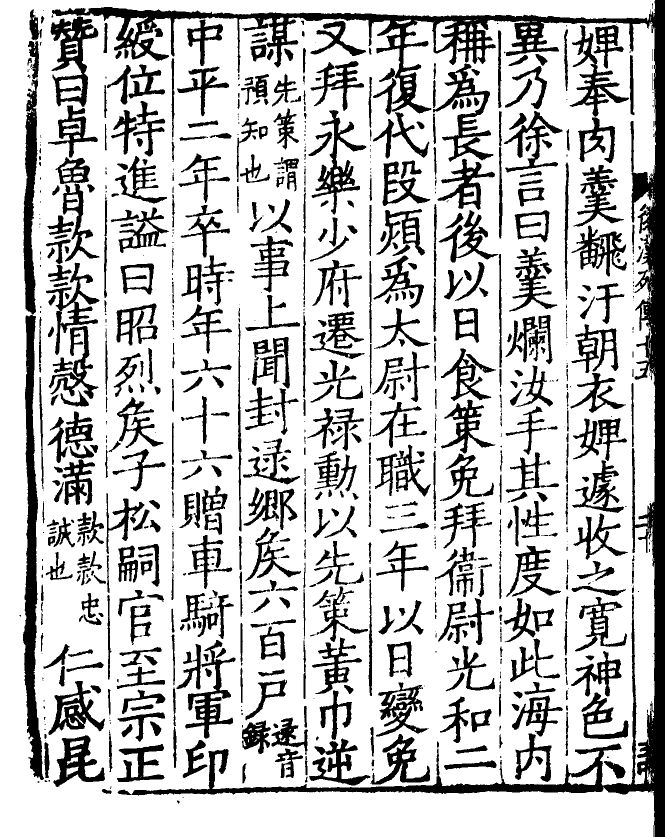 婢奉肉羹飜汙朝衣婢遽收之寛神色不
異乃徐言曰羹爛汝手其性度如此海内
稱爲長者後以日食策免拜衞尉光和二
年復代段熲爲太尉在職三年以日變免
又拜永樂少府遷光禄勳以先策黄巾逆
謀先策謂預知也以事上聞封逯鄉矦六百户逯音録
中平二年卒時年六十六贈車騎將軍印
綬位特進謚曰昭烈矦子松嗣官至宗正
贊曰卓魯款款情慤德滿款款忠誠也仁感昆